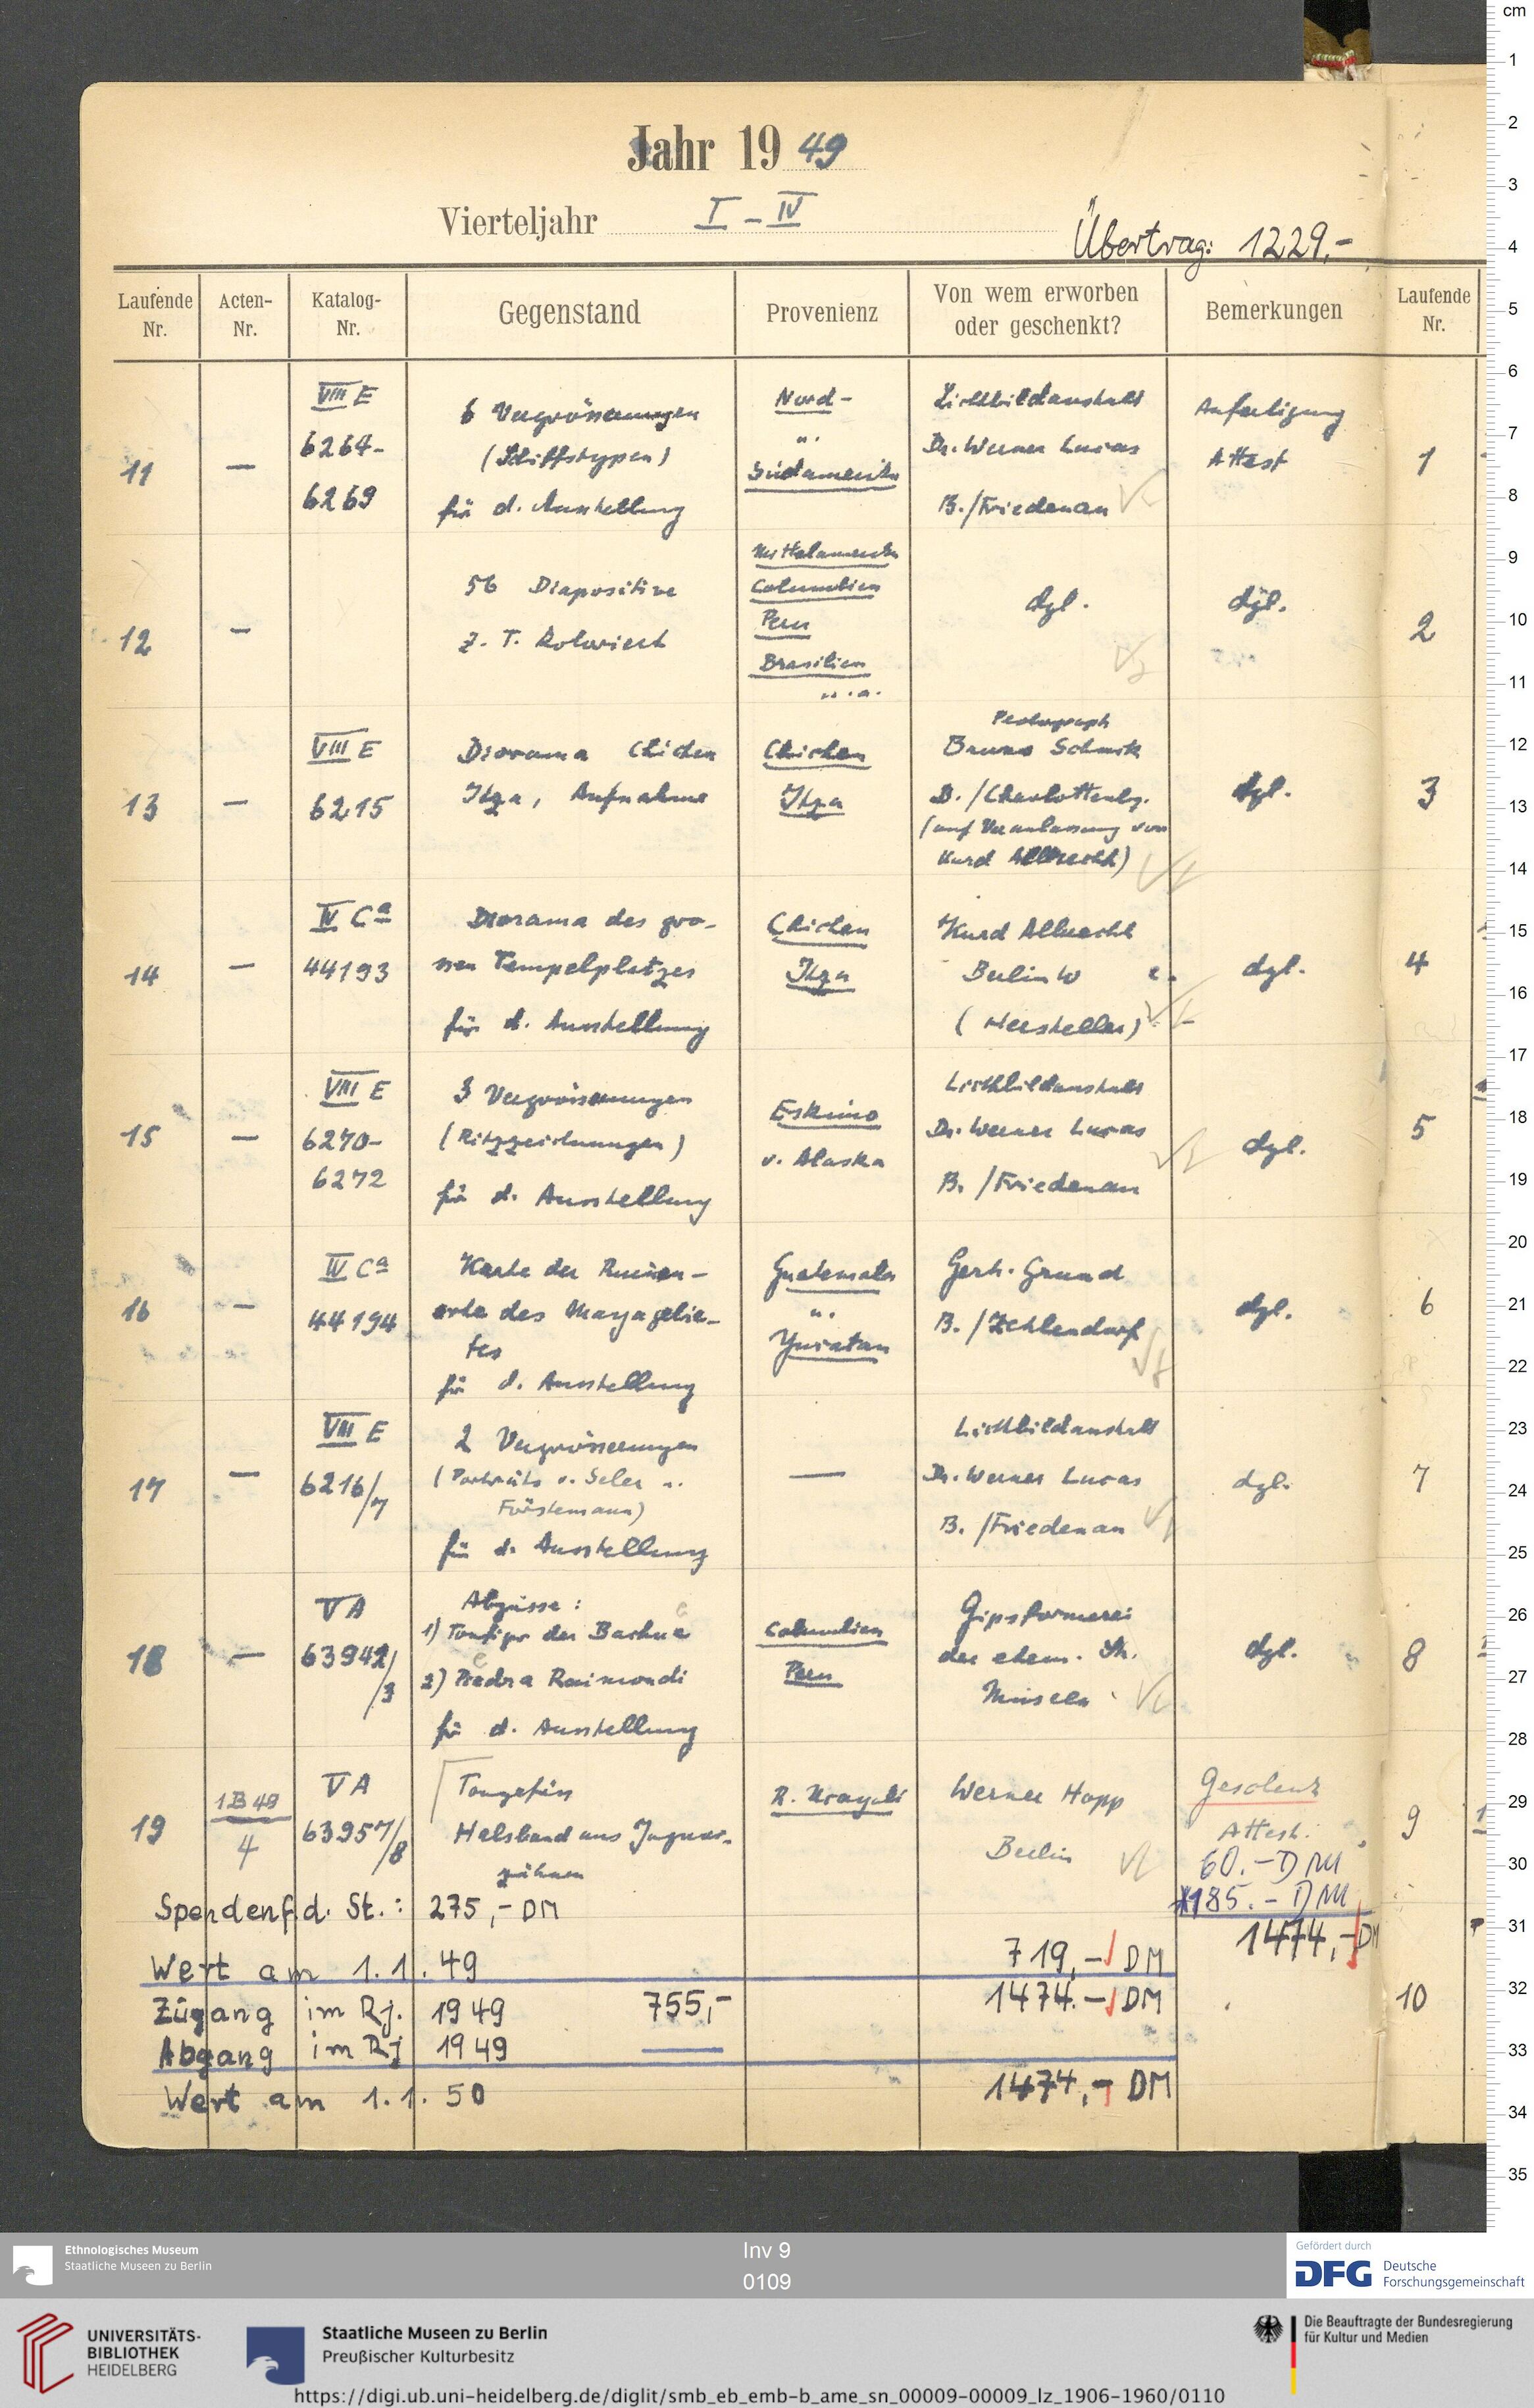 Jahr 1949
Vierteljahr I – IV
Übertrag: 1229,-
Laufende Nr.
Acten-Nr.
Katalog-Nr.
Gegenstand
Provenienz
Von wem erworben oder geschenkt?
Bemerkungen
Laufende Nr.
11
—
VIII E
6264-
6269
6 Vergrösserungen
(Schiffstypen)
für d. Ausstellung
Nord-
u.
Südamerika
Lichtbildanstalt
Dr. Werner Lucas
B./Friedenau
Anfertigung
Attest
1
12
—
56 Diapositive
z. T. koloriert
Mittelamerika
Columbien
Peru
Brasilien
u. a.
dgl.
dgl.
2
13
—
VIII E
6215
Diorama Chichen
Itza, Aufnahme
Chichen
Itza
Photograph
Bruno Schuck
B./Charlottenbg.
(auf Veranlassung von
Kurd Albrecht)
dgl.
3
14
—
IV Ca
44193
Diorama des gro-
ssen Tempelplatzes
für d. Ausstellung
Chichen
Itza
Kurd Albrecht
Berlin W
(Hersteller)
dgl.
4
15
—
VIII E
6270-
6272
3 Vergrösserungen
(Ritzzeichnungen)
für d. Ausstellung
Eskimo
v. Alaska
Lichtbildanstalt
Dr. Werner Lucas
B./Friedenau
dgl.
5
16
—
IV Ca
44194
Karte der Ruinen-
orte des Mayagebie-
tes
für d. Ausstellung
Guatemala
u.
Yucatan
Gerh. Grund
B./Zehlendorf
dgl.
6
17
—
VIII E
6216/7
2 Vergrösserungen
(Porträts v. Seler u.
Förstemann)
für d. Ausstellung
—
Lichtbildanstalt
Dr. Werner Lucas
B./Friedenau
dgl.
7
18
—
VA
63942/3
Abgüsse:
1) Tonfigur der Bachue
2) Piedra Raimondi
für d. Ausstellung
Columbien
Peru
Gipsformerei
der ehem. St.
Museen
dgl.
8
19
1B49
4
VA
63957/8
Tongefäss
Halsband aus Jaguar-
zähnen
Werner Hopp
Berlin
Geschenk
Attest.
60.- DM
185.- DM
1474,- DM
9
Spendenf.d. St.: 275,- DM
Wert am 1.1.49 719,- DM
Zugang im Rj. 1949 755,- 1474.- DM
Abgang im Rj 1949 —
Wert am 1.1.50 1474,- DM
10
cm
1
2
3
4
5
6
7
8
9
10
11
12
13
14
15
16
17
18
19
20
21
22
23
24
25
26
27
28
29
30
31
32
33
34
35
Ethnologisches Museum
Staatliche Museen zu Berlin
Inv 9
0109
Gefördert durch
DFG Deutsche
Forschungsgemeinschaft
UNIVERSITÄTS-
BIBLIOTHEK
HEIDELBERG
Staatliche Museen zu Berlin
Preußischer Kulturbesitz
Die Beauftragte der Bundesregierung
für Kultur und Medien
https://digi.ub.uni-heidelberg.de/diglit/smb_eb_emb-b_ame_sn_00009-00009_lz_1906-1960/0110